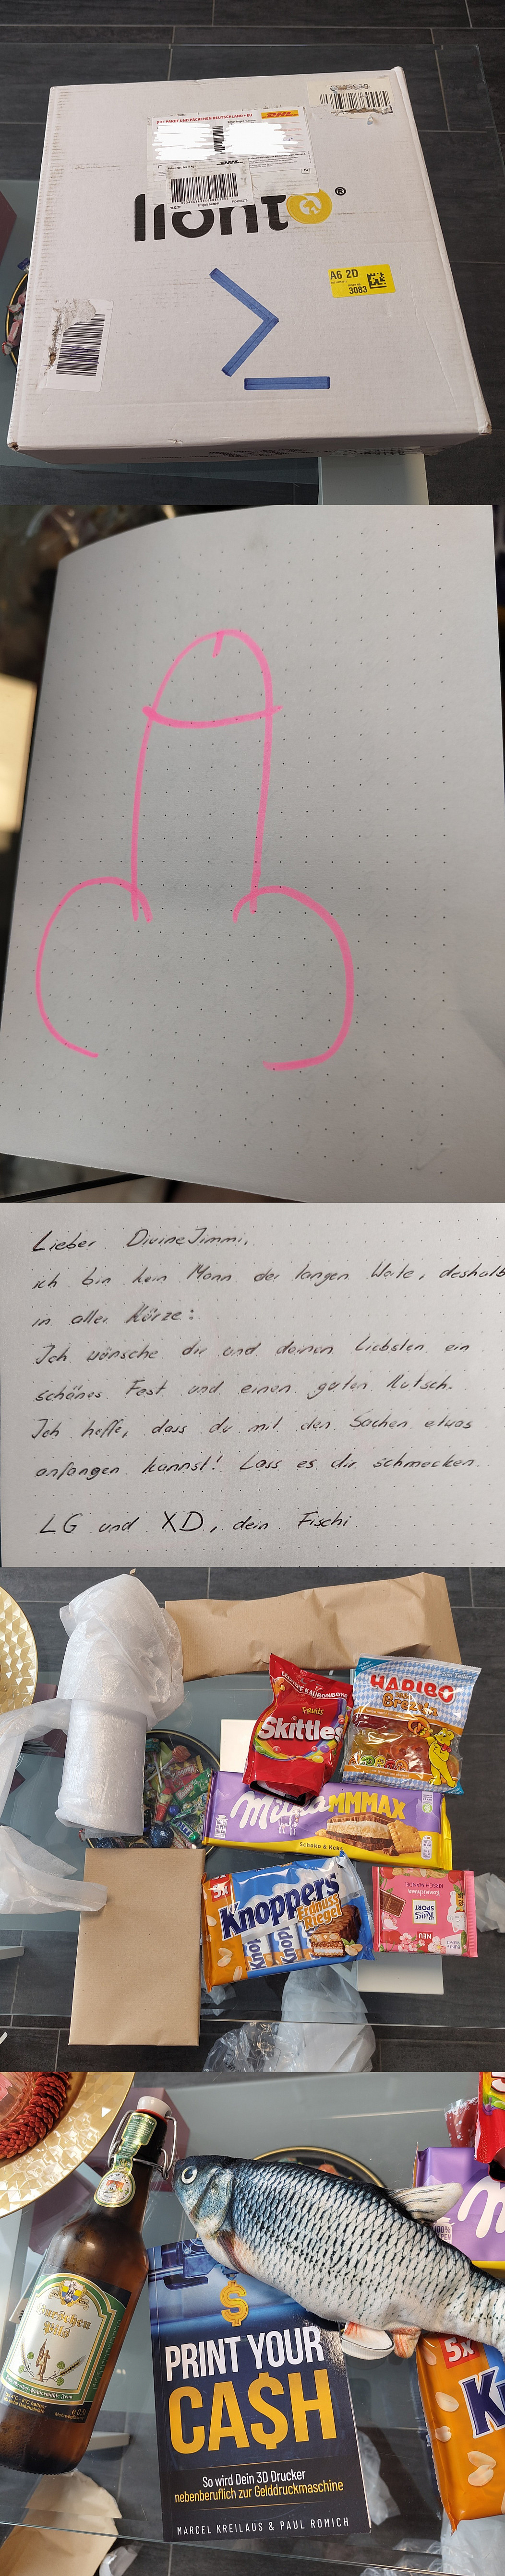 DHL PAKET UND PÄCKCHEN DEUTSCHLAND + EU
DHL
DHL
lionto
®
A6 2D
3083
>_
Lieber DivineJimmi,
ich bin kein Mann der langen Worte, deshalb
in aller Kürze:
Ich wünsche dir und deinen Liebsten ein
schönes Fest und einen guten Rutsch.
Ich hoffe, dass du mit den Sachen etwas
anfangen kannst! Lass es dir schmecken.
LG und XD, dein Fischi
LEBENDIGE
Fruits
Skittles
HARIBO
Brezeln
Milka MMMAX
Schoko & Keks
5x
Knoppers
Erdnuss
Riegel
Ritter
SPORT
KIRSCH MANDEL
NEU
Burschen
Pils
PRINT YOUR
CA$H
So wird Dein 3D Drucker
nebenberuflich zur Gelddruckmaschine
MARCEL KREILAUS & PAUL ROMICH
5x